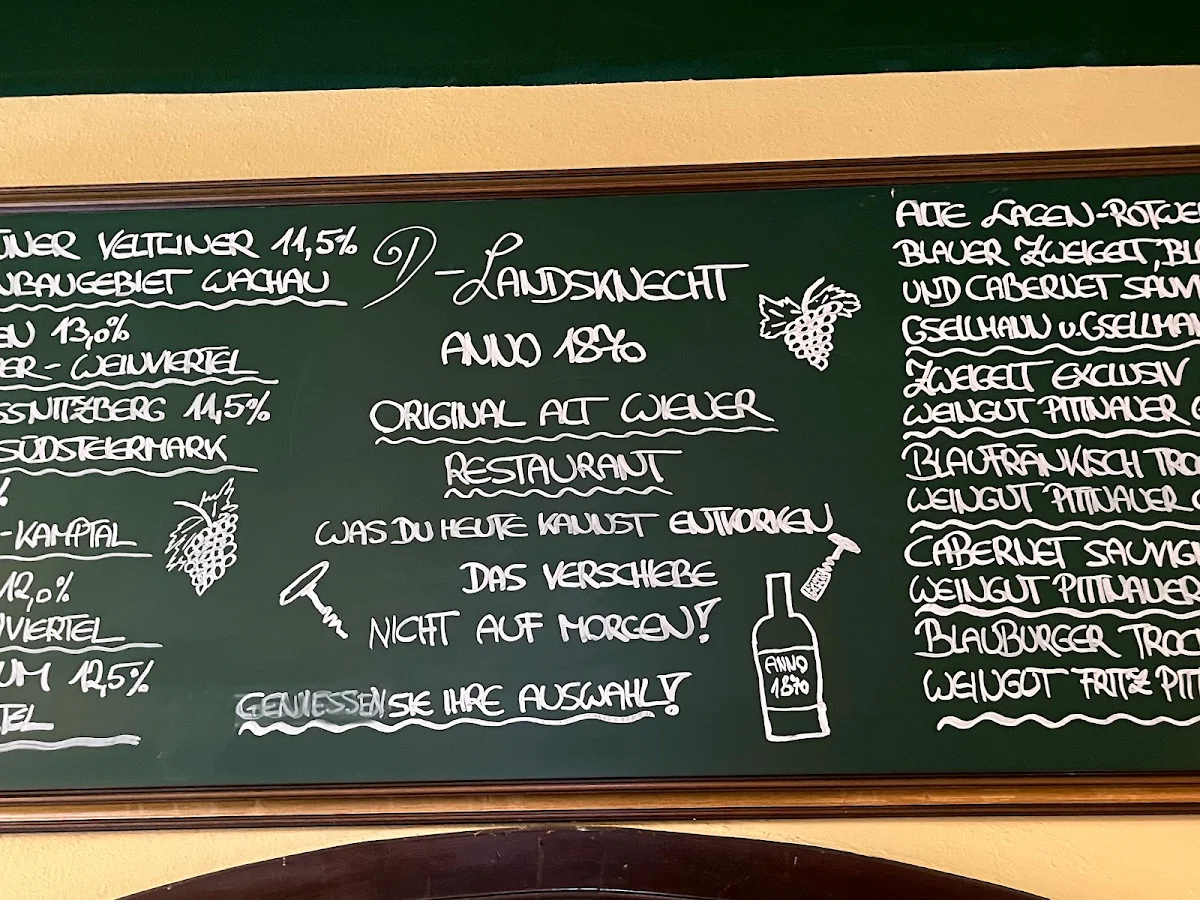 ÜNER VELTLINER 11,5%
NBAUGEBIET WACHAU
EN 13,0%
ER-WEINVIERTEL
SSNITZBERG 11,5%
SÜDSTEIERMARK
%
-KAMPTAL
12,0%
NVIERTEL
UM 12,5%
TEL
D-LANDSKNECHT
ANNO 1870
ORIGINAL ALT WIENER
RESTAURANT
WAS DU HEUTE KANNST ENTKORKEN
DAS VERSCHIEBE
NICHT AUF MORGEN!
GENIESSEN SIE IHRE AUSWAHL!
ANNO
1870
ALTE LAGEN-ROTWE
BLAUER ZWEIGELT, BL
UND CABERNET SAUV
GSELLMANN u. GSELLMAN
ZWEIGELT EXCLUSIV
WEINGUT PITTNAUER G
BLAUFRÄNKISCH TRO
WEINGUT PITTNAUER G
CABERNET SAUVIG
WEINGUT PITTNAUER
BLAUBURGER TROC
WEINGUT FRITZ PIT